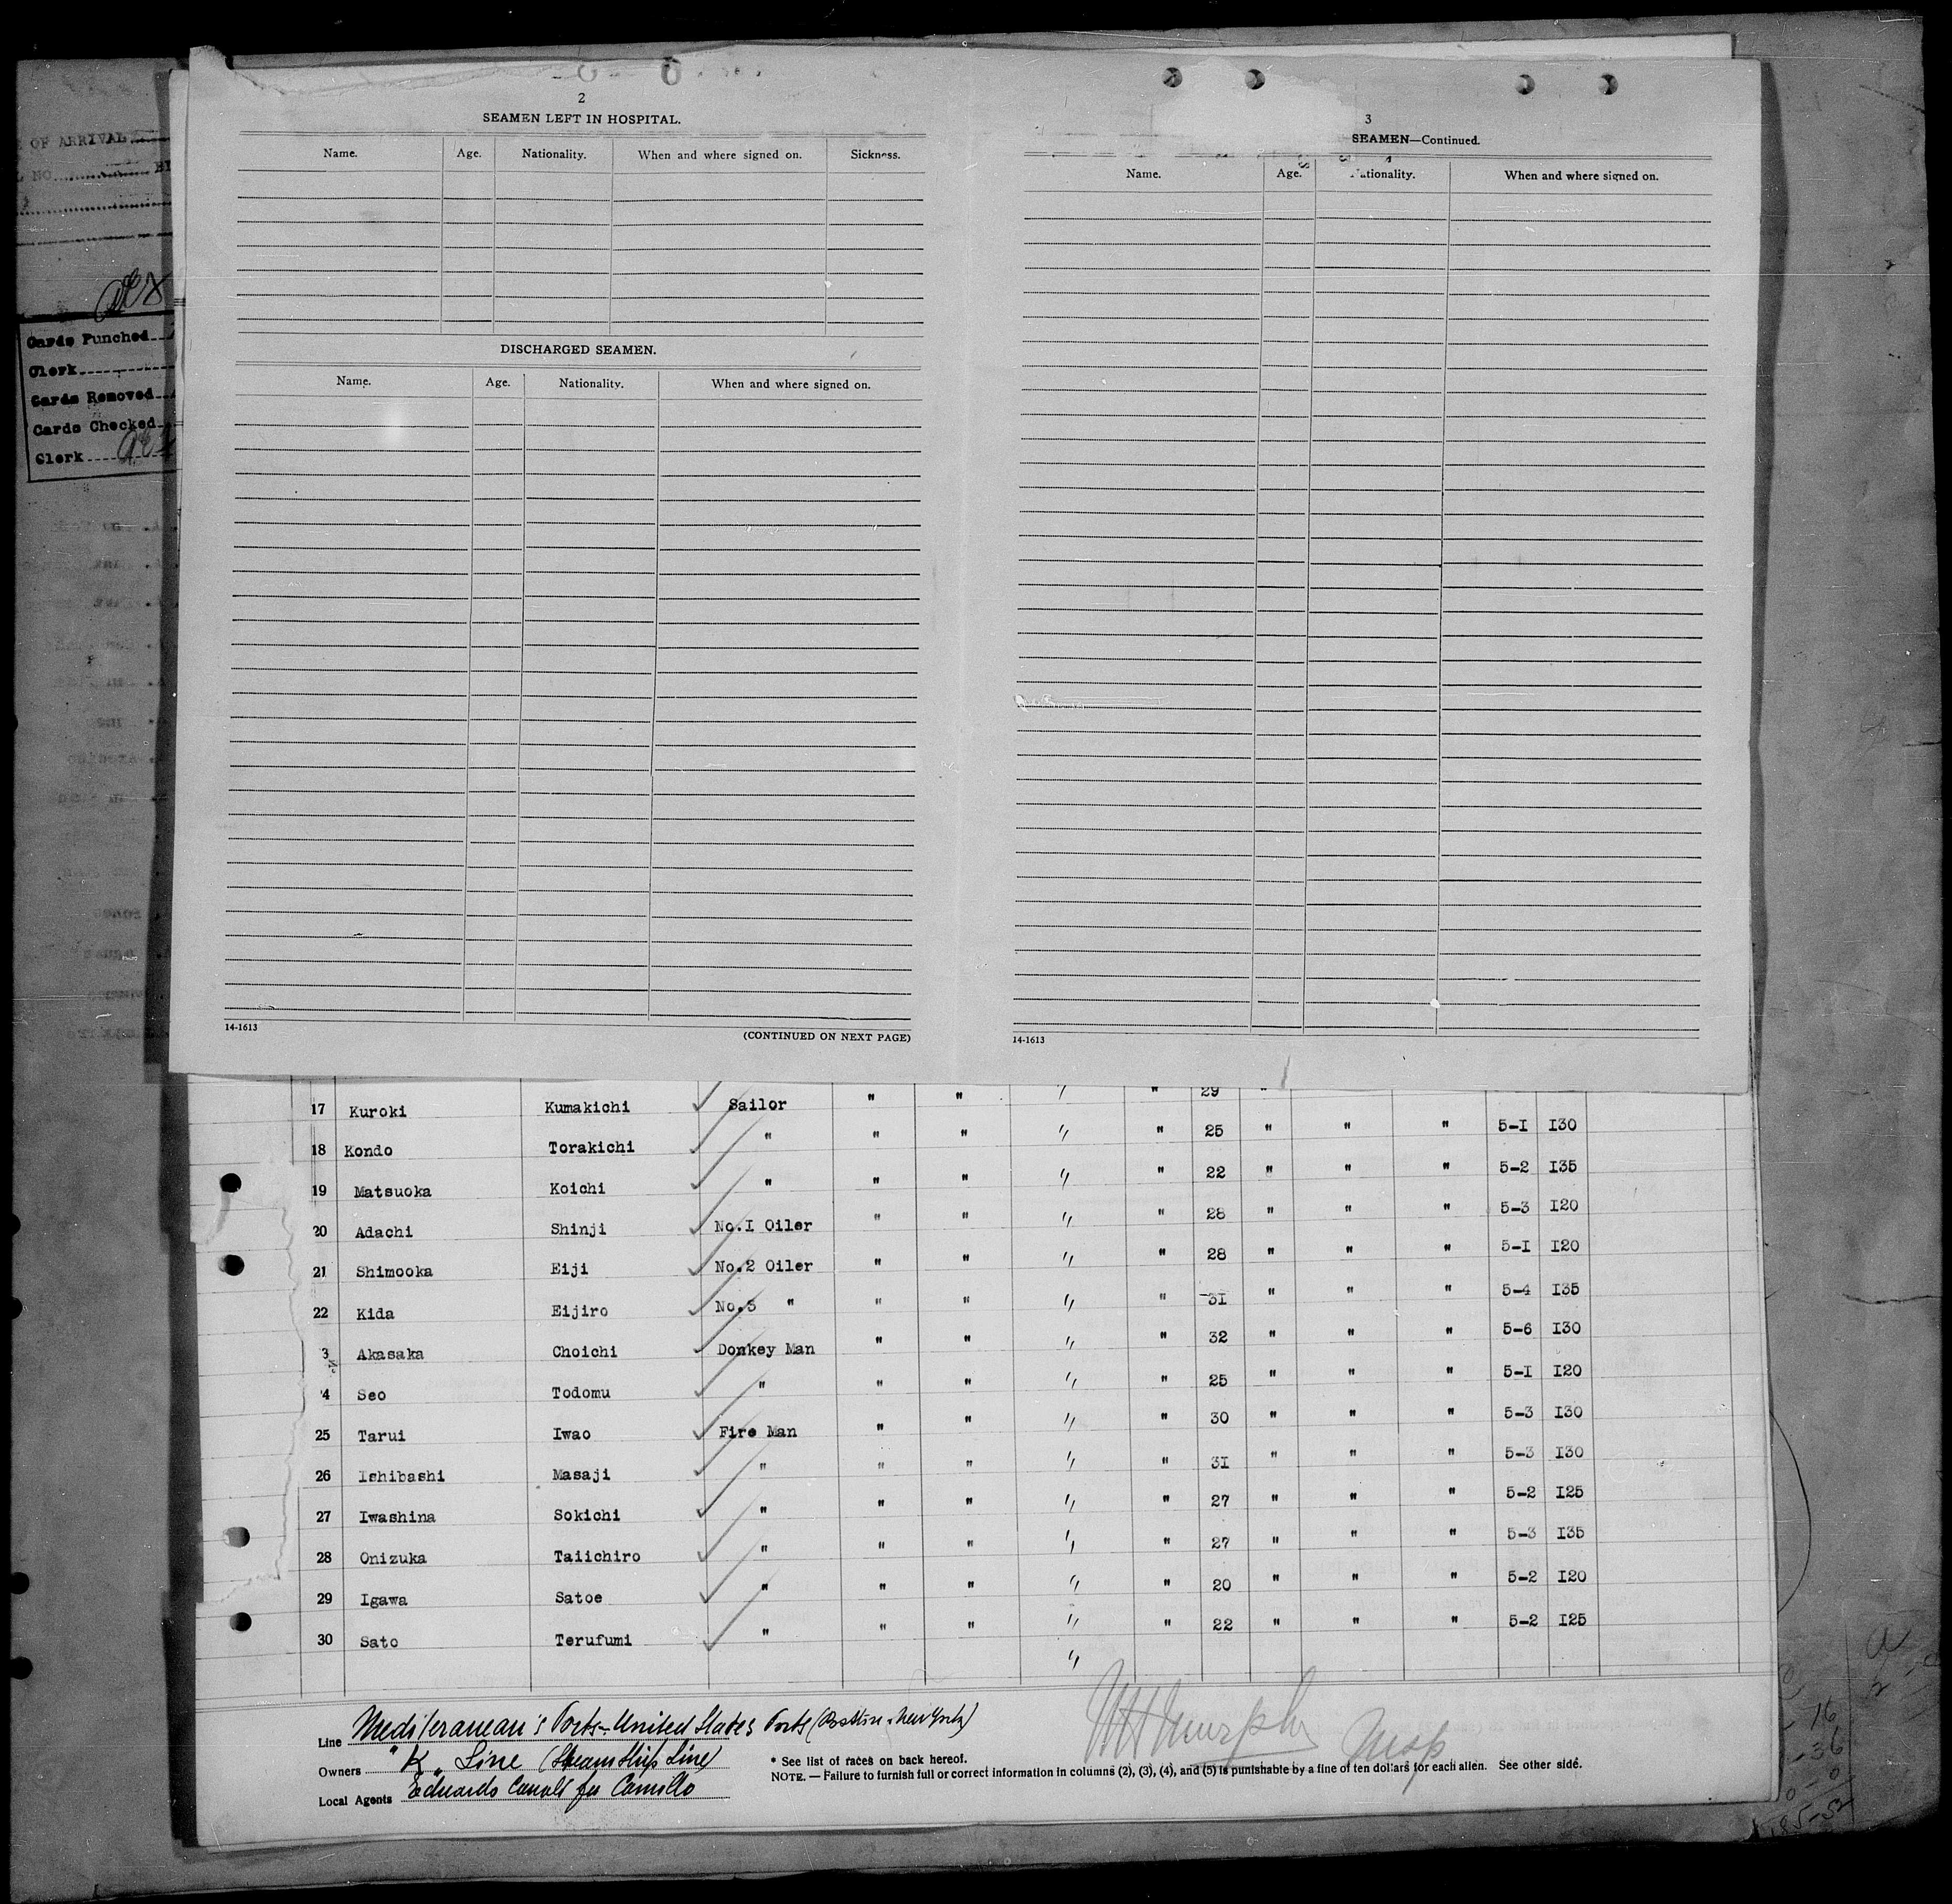 OF ARRIVAL
NO
Cards Punched
Clerk
Cards Removed
Cards Checked
Clerk
2
SEAMEN LEFT IN HOSPITAL.
Name. Age. Nationality. When and where signed on. Sickness.
DISCHARGED SEAMEN.
Name. Age. Nationality. When and where signed on.
14-1613 (CONTINUED ON NEXT PAGE)
3
SEAMEN—Continued.
Name. Age. Nationality. When and where signed on.
14-1613
17 Kuroki Kumakichi Sailor " " " " 29 "
18 Kondo Torakichi " " " " " 25 " " " 5-1 130
19 Matsuoka Koichi " " " " " 22 " " " 5-2 135
20 Adachi Shinji No.1 Oiler " " " " 28 " " " 5-3 120
21 Shimooka Eiji No.2 Oiler " " " " 28 " " " 5-1 120
22 Kida Eijiro No.3 " " " " " 31 " " " 5-4 135
3 Akasaka Choichi Donkey Man " " " " 32 " " " 5-6 130
4 Seo Todomu " " " " " 25 " " " 5-1 120
25 Tarui Iwao Fire Man " " " " 30 " " " 5-3 130
26 Ishibashi Masaji " " " " " 31 " " " 5-3 130
27 Iwashina Sokichi " " " " " 27 " " " 5-2 125
28 Onizuka Taiichiro " " " " " 27 " " " 5-3 135
29 Igawa Satoe " " " " " 20 " " " 5-2 120
30 Sato Terufumi " " " " " 22 " " " 5-2 125
"
Line Mediteranean's Ports-United States Ports (Boston-New York)
Owners "K" Line (Steamship Line)
Local Agents Eduardo Canali fu Camillo
* See list of races on back hereof.
NOTE.—Failure to furnish full or correct information in columns (2), (3), (4), and (5) is punishable by a fine of ten dollars for each alien. See other side.
W H Murphy